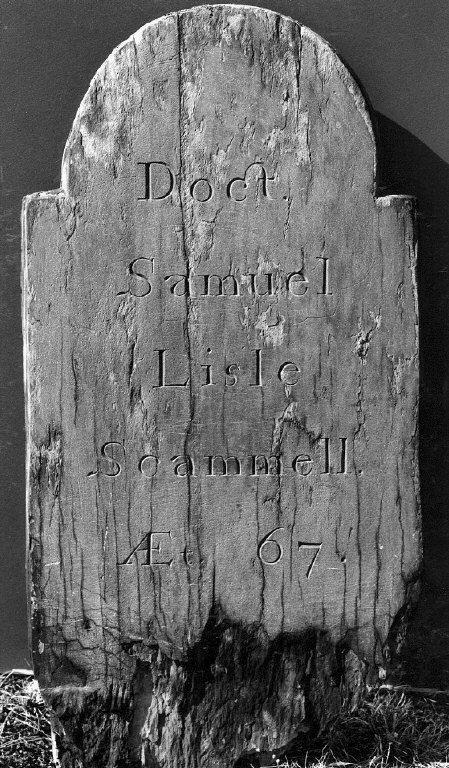 Doct.
Samuel
Lisle
Scammell.
Æt. 67.